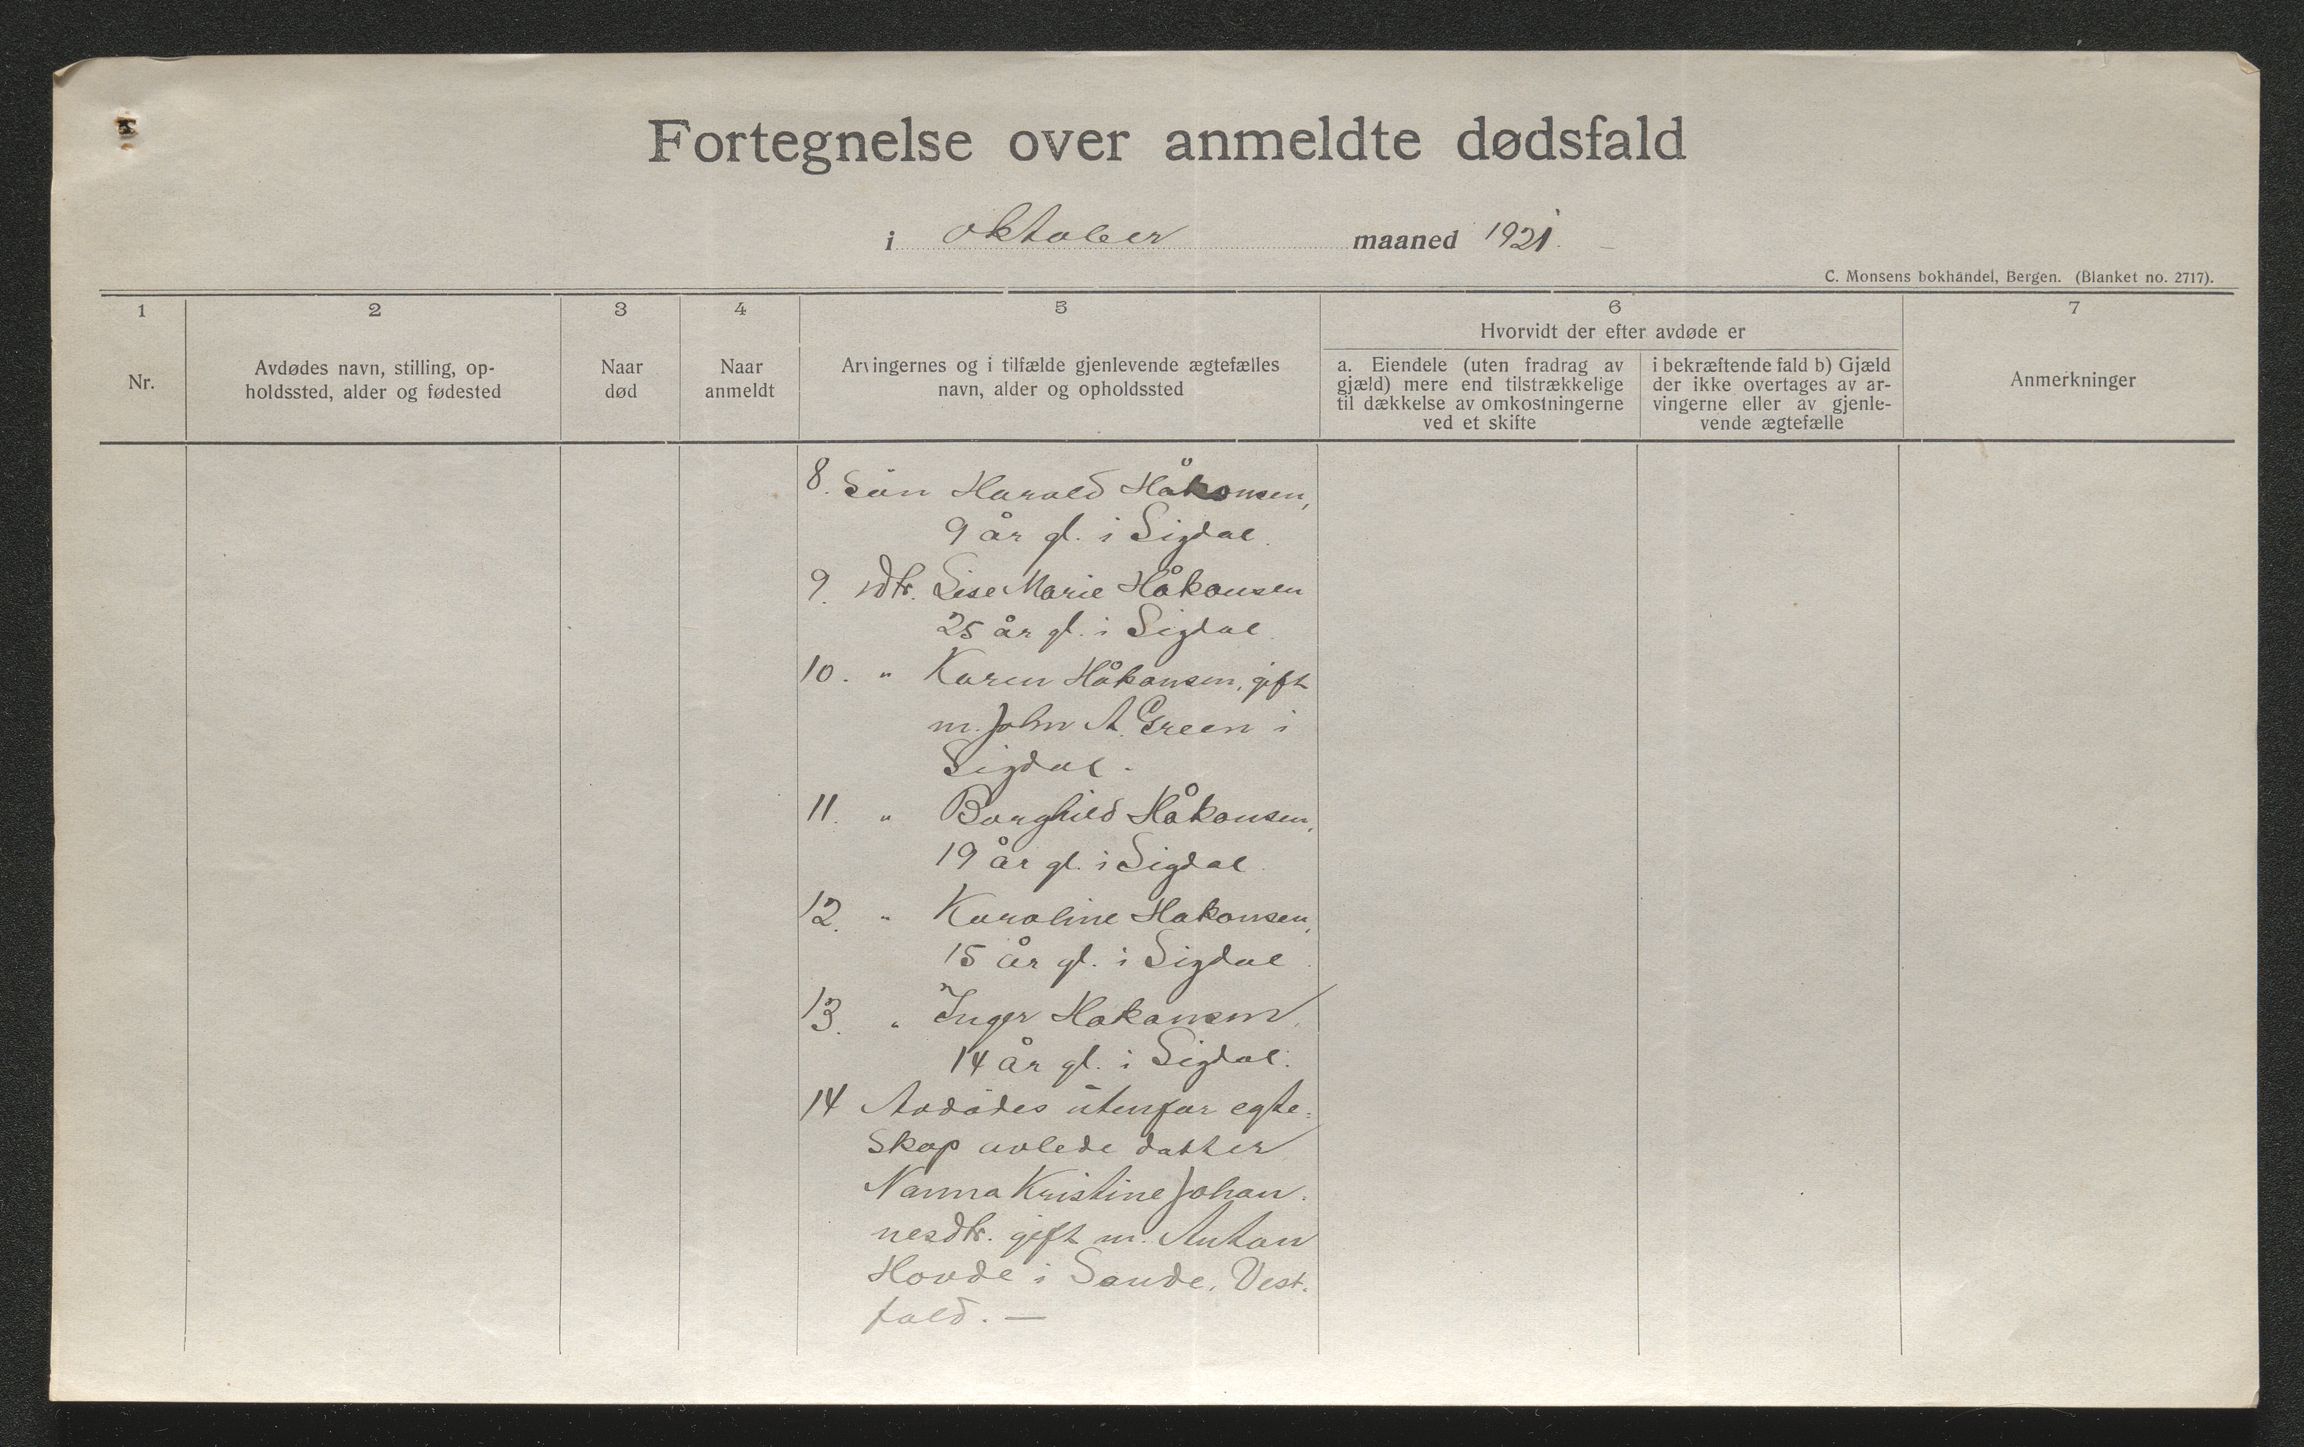 Fortegnelse over anmeldte dødsfald
i oktober maaned 1921.
C. Monsens bokhandel, Bergen. (Blanket no. 2717).
1
2
3
4
5
6
7
Nr.
Avdødes navn, stilling, op-
holdssted, alder og fødested
Naar
død
Naar
anmeldt
Arvingernes og i tilfælde gjenlevende ægtefælles
navn, alder og opholdssted
Hvorvidt der efter avdøde er
a. Eiendele (uten fradrag av
gjæld) mere end tilstrækkelige
til dækkelse av omkostningerne
ved et skifte
i bekræftende fald b) Gjæld
der ikke overtages av ar-
vingerne eller av gjenle-
vende ægtefælle
Anmerkninger
8. Sön Harald Håkonsen,
9 år gl. i Sigdal.
9. dtr. Lise Marie Håkonsen
25 år gl. i Sigdal.
10. " Karen Håkonsen, gift
m. John A. Green i
Sigdal.
11. " Borghild Håkonsen,
19 år gl. i Sigdal.
12. " Karoline Hakonsen,
15 år gl. i Sigdal.
13. " Inger Hakonsen,
14 år gl. i Sigdal.
14 Avdödes utenfor egte-
skap avlede datter
Nanna Kristine Johan-
nesdtr. gift m. Anton
Hovde i Sande, Vest-
fold. —